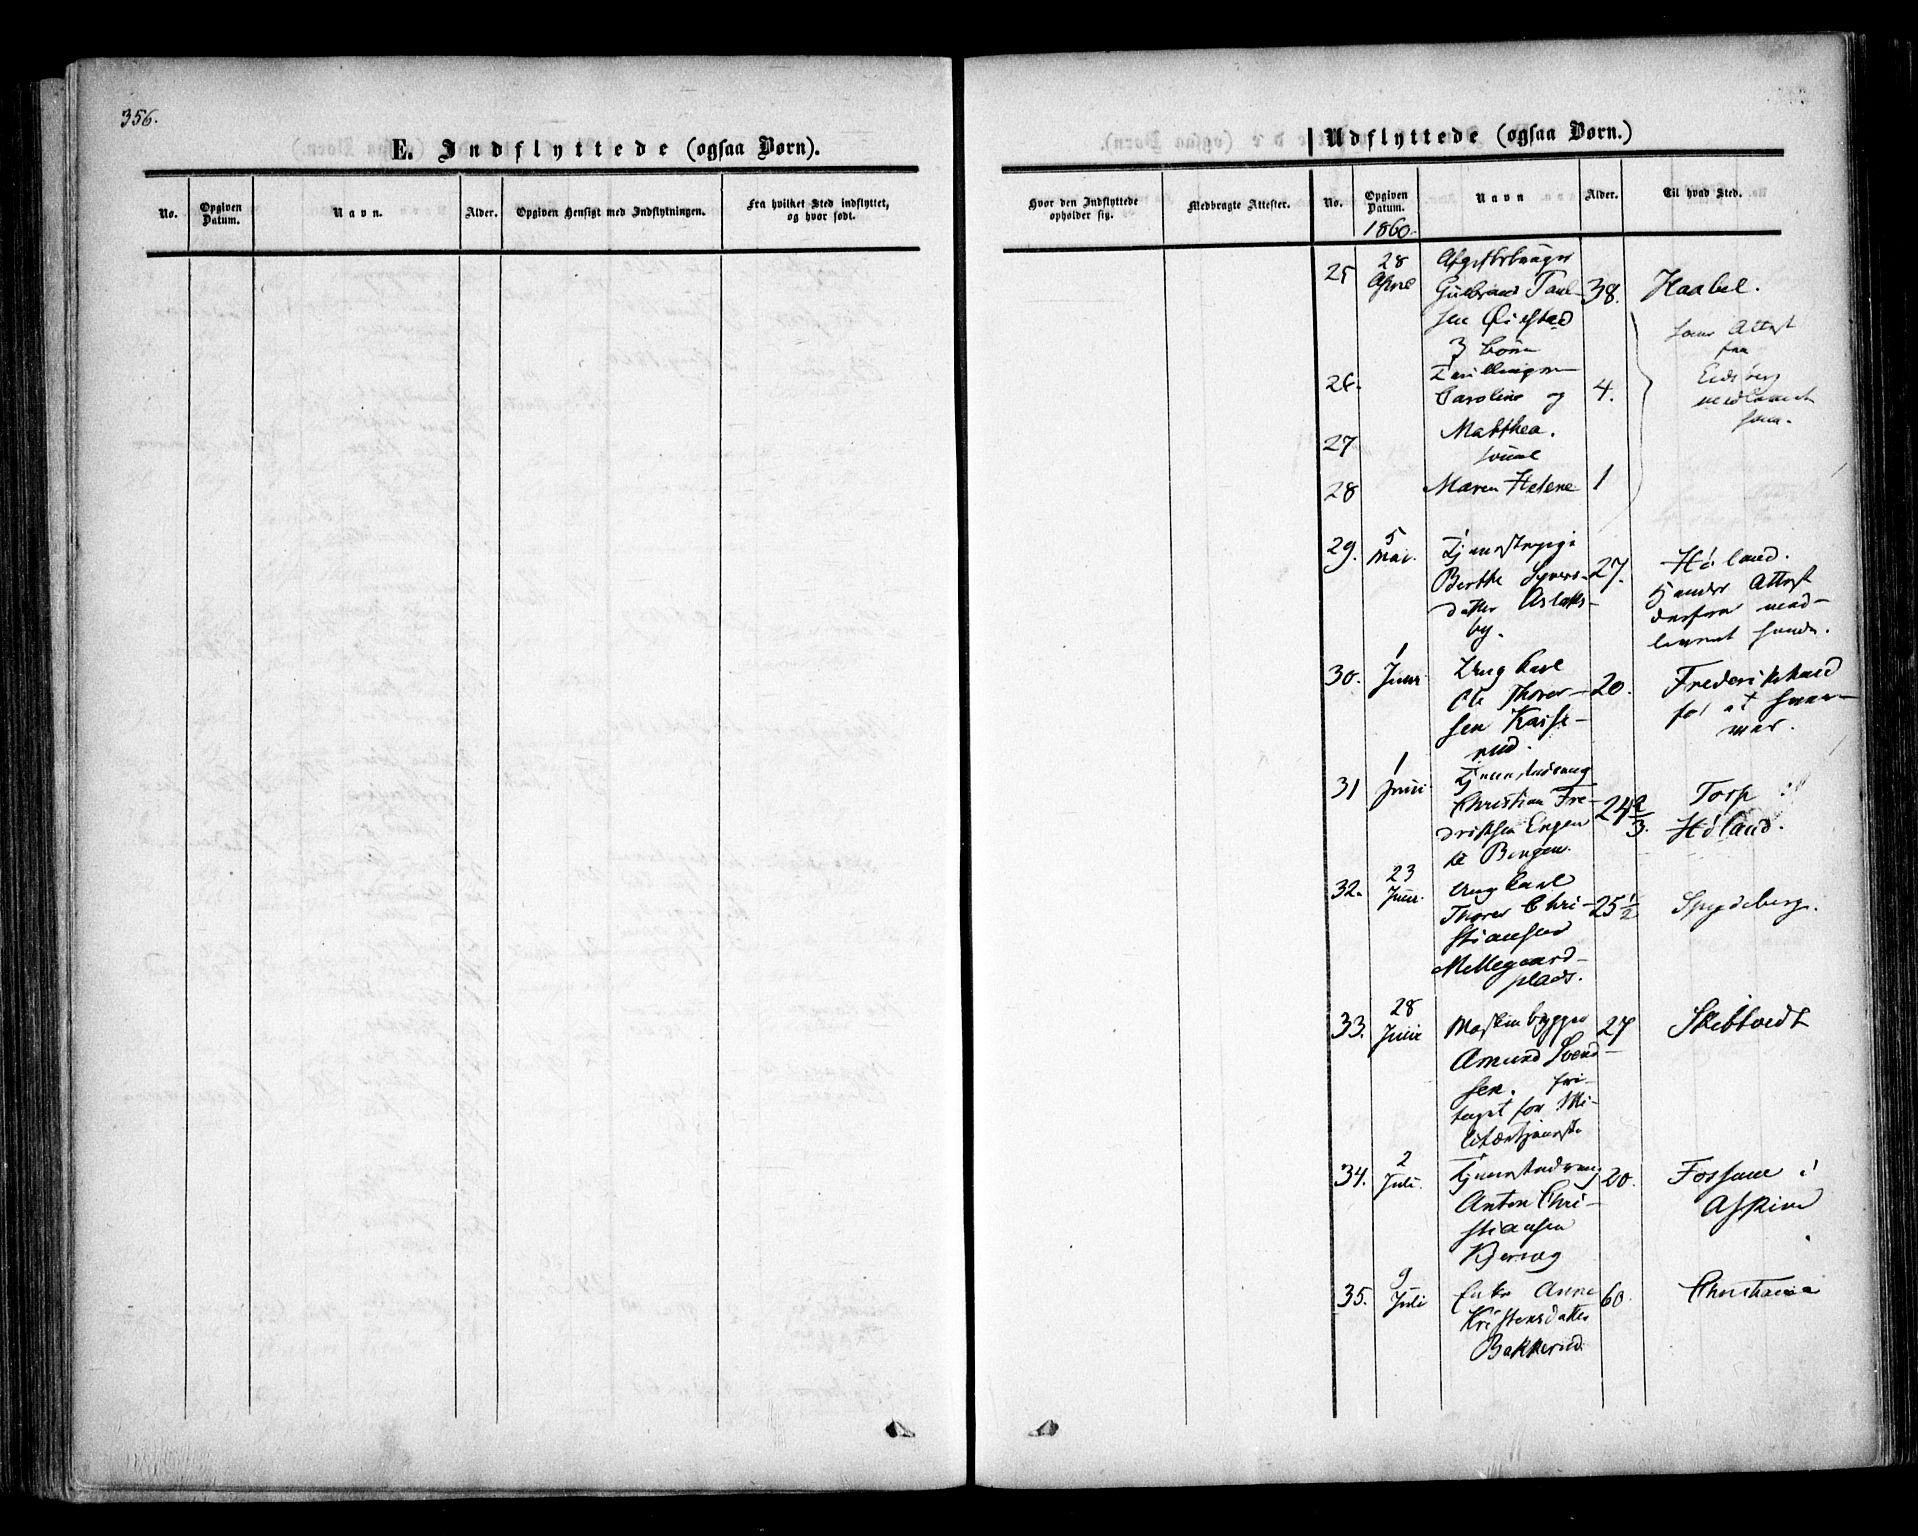 356.
E. Indflyttede (ogsaa Børn).
No.
Opgiven
Datum.
Navn.
Alder.
Opgiven Hensigt med Indflytningen.
Fra hvilket Sted indflyttet,
og hvor født.
Udflyttede (ogsaa Børn.)
Hvor den Indflyttede
opholder sig.
Medbragte Attester.
No.
Opgiven
Datum.
Navn
Alder.
Til hvad Sted.
1860.
25 28 April
Gulbrand Paul-
sen Øiestad
3 Børn
38. Haabøl.
Attest
fra
Eidsberg
26.
Tvillinger
Caroline og
4.
27
Matthea.
28 Maren Helene 1
29. 5 Mai. Tjenestepige
Berthe Syvers-
datter Aslaks-
by.
27. Høland.
Attest
30. 1 Juni Ung Karl
Ole Thorer-
sen Kasse-
rud.
20. Frederikshald
for at
31 1 Juni Tjenestedreng
Christian Fre-
driksen Engen
Bingen.
24 2/3. Torp
Høland.
32. 23 Juni. Ung Karl
Thorer Chri-
stiansen
Mellegaard-
plads.
25 1/2 Spydeberg.
33. 28 Juni Maskinbygger
Amund Svend-
sen. fri-
taget for Mi-
litærtjeneste
27 Skibtvedt
34. 2 Juli. Tjenestedreng
Anton Chri-
stiansen
20. Fossum i
Askim
35. 9 Juli Enke Anne
Kristensdatter
Bakkerud.
60. Christiania